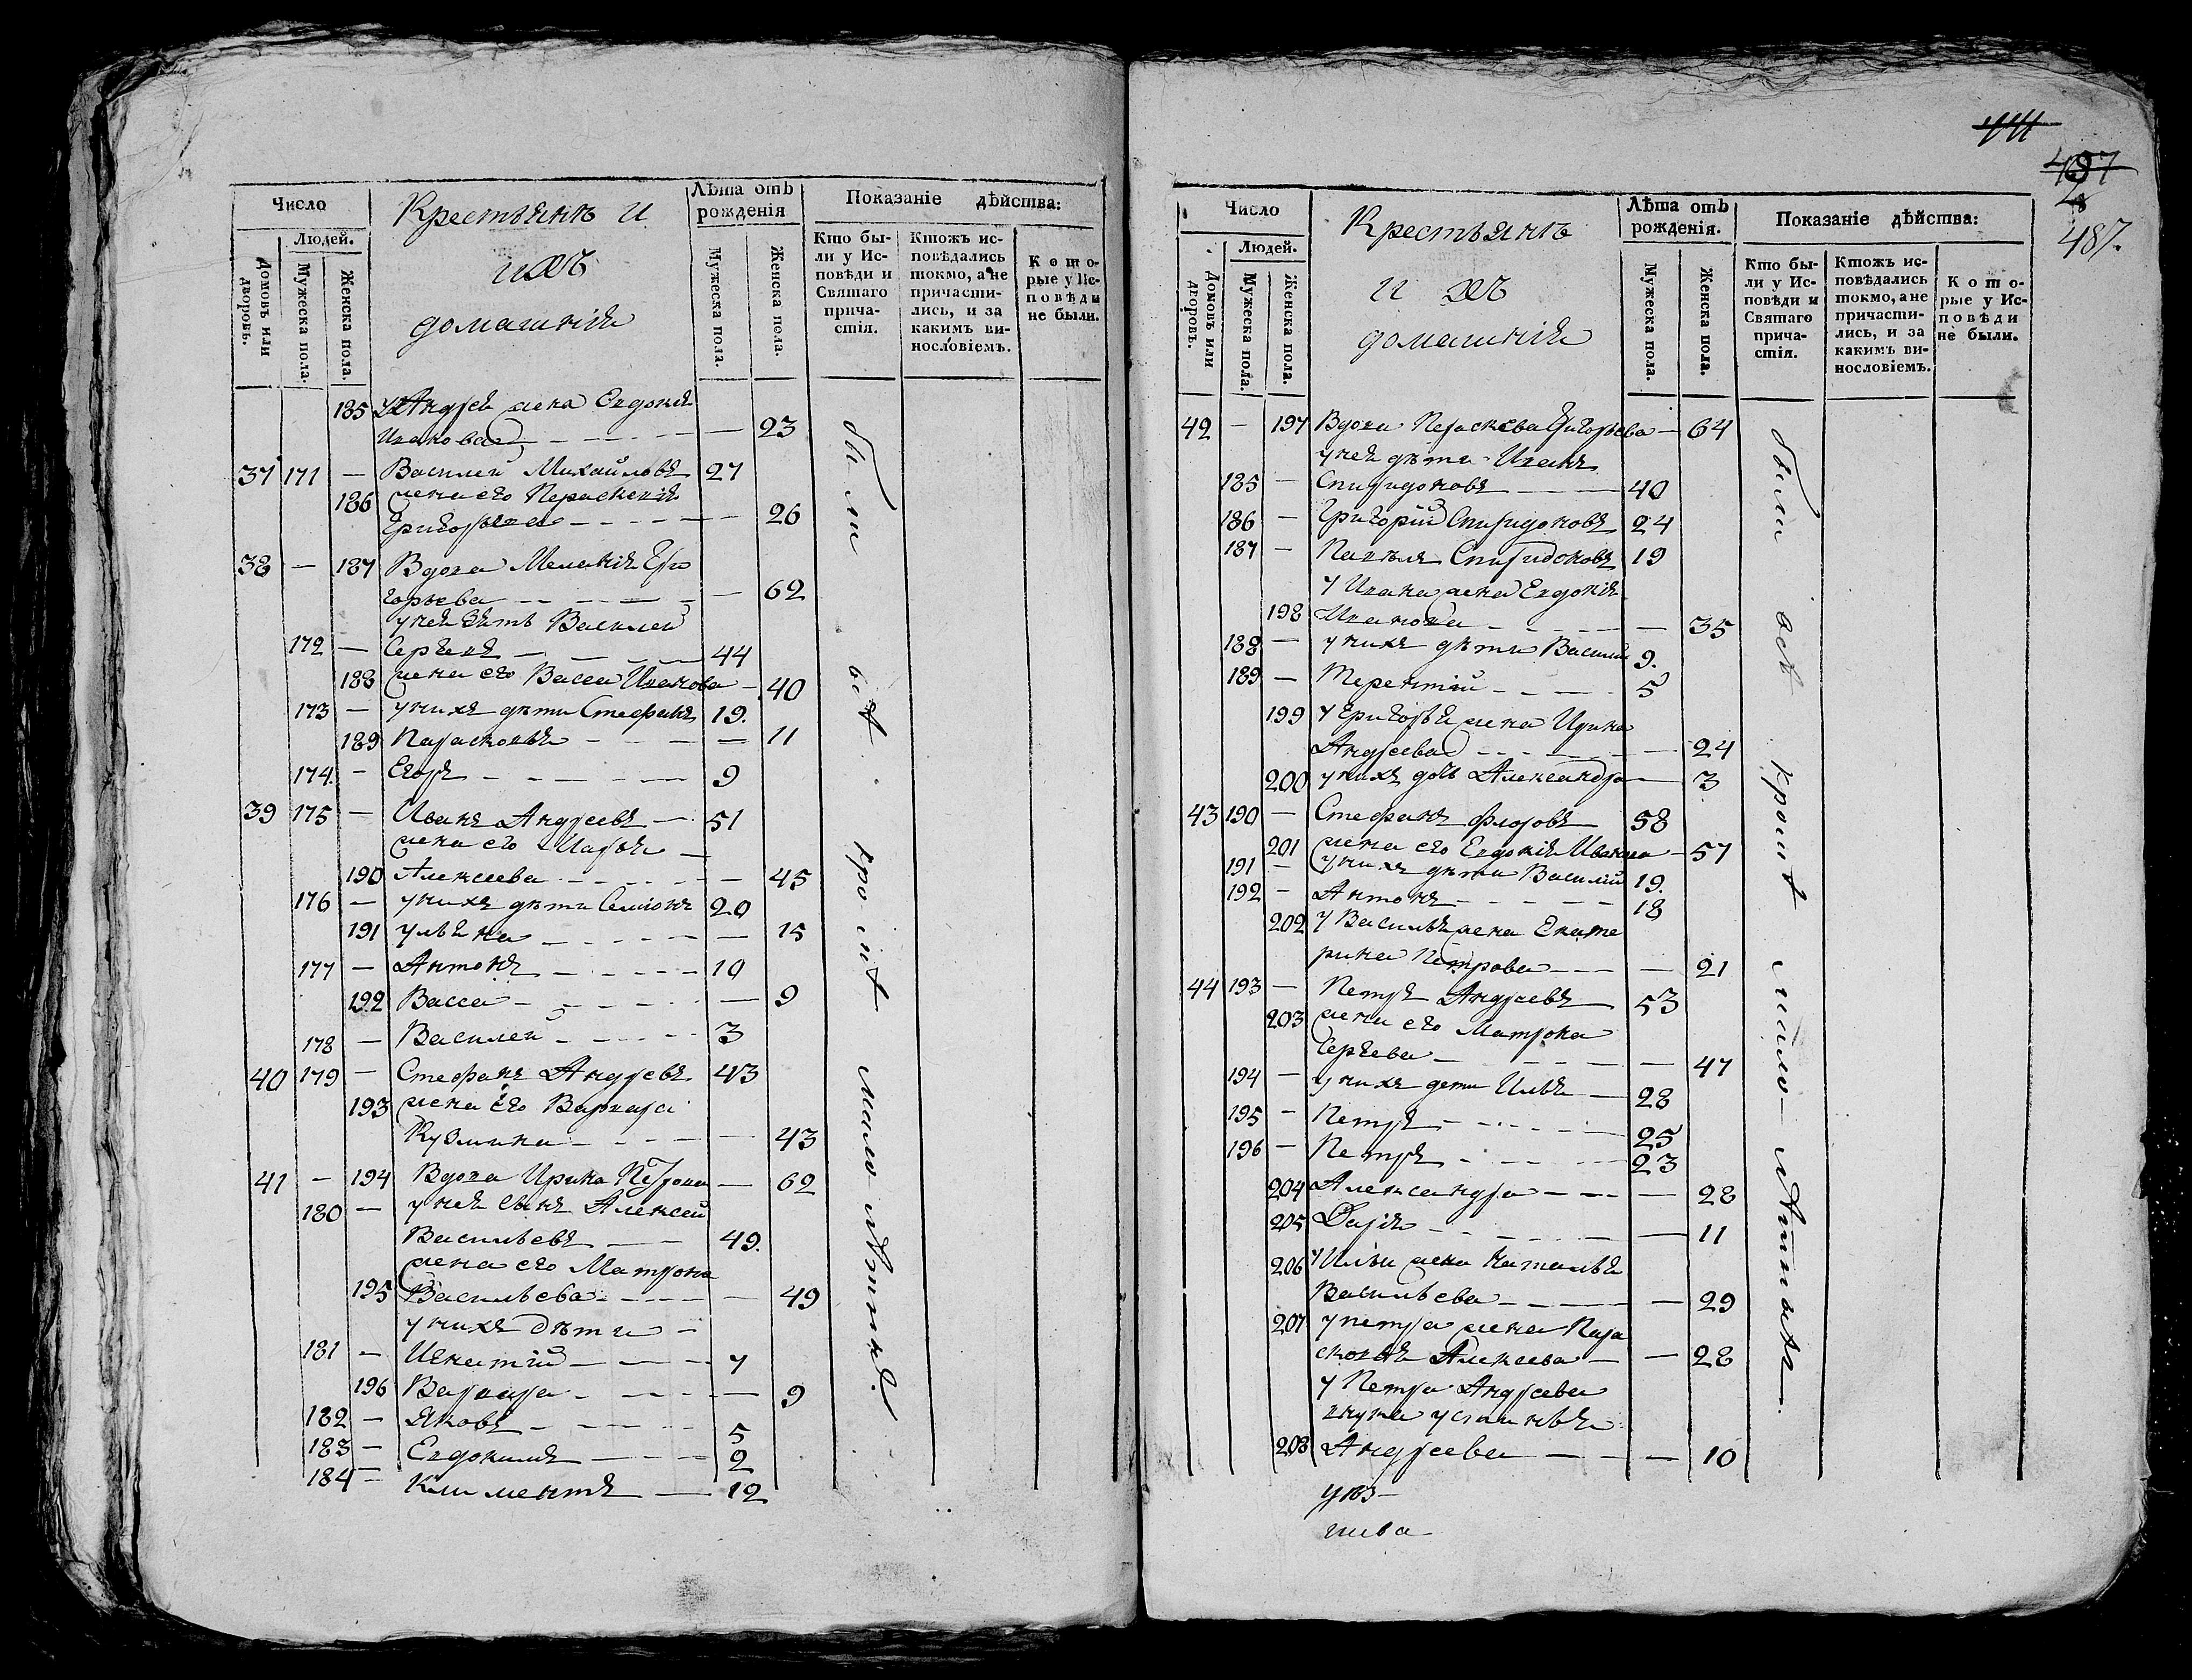 Число
Людей.
Домовъ или дворовъ.
Мужеска пола.
Женска пола.
Крестьянъ и
ихъ
домашнія
Лѣта отъ рожденія
Мужеска пола.
Женска пола.
Показаніе дѣйства:
Кто бы-
ли у Ис-
повѣди и
Святаго
прича-
стія.
Ктожъ ис-
повѣдались
токмо, а не
причасти-
лись, и за
какимъ ви-
нословіемъ.
Кото-
рые у Ис-
повѣди
не были.
185 у Андрея жена Евдокія
Иванова — 23
37 171 — Василей Михайловъ 27
186 жена его Параскевія
Григорьева — 26
38 — 187 Вдова Меланія Гри
горьева — 62
у нея зять Василей
172 — Сергѣевъ — 44
188 жена его Васса Иванова — 40
173 — у нихъ дѣти Стефанъ 19.
189 Парасковья — 11
174. — Егоръ — 9
39 175 — Иванъ Андреевъ — 51
жена его Марья —
190 Алексеева — 45
176 — у нихъ дѣти Семіонъ 20
191 Ульяна — 15
177 — Антонъ — 10
192 Васса — 9
178 — Василей — 3
40 179 — Стефанъ Андреевъ 43
193 жена его Варвара
Кузмина — 43
41 — 194 Вдова Ирина Петрова — 62
180 — у нея сынъ Алексей
Васильевъ — 49.
жена его Матрона
195 Васильева — 49
у нихъ дѣти —
181 — Игнатій — 7
196 Варвара — 9
182 — Яковъ — 5
183 — Евдокимъ — 2
184 — Климентъ — 12
были всѣ кромѣ мало лѣтнѣ.
487
487.
Число
Людей.
Домовъ или дворовъ.
Мужеска пола.
Женска пола.
Крестьянъ
и ихъ
домашнія
Лѣта отъ рожденія.
Мужеска пола.
Женска пола.
Показаніе дѣйства:
Кто бы-
ли у Ис-
повѣди и
Святаго
прича-
стія.
Ктожъ ис-
повѣдались
токмо, а не
причасти-
лись, и за
какимъ ви-
нословіемъ.
Кото-
рые у Ис-
повѣди
не были.
42 — 197 Вдова Параскева Григорьева — 64
у нея дѣти Иванъ
185 — Спиридоновъ — 40
186 — Григорій Спиридоновъ 24
187 — Павелъ Спиридоновъ 19
у Ивана жена Евдокія
198 Иванова — 35
188 — у нихъ дѣти Василій 9.
189 — Терентій — 5
199 у Григорья жена Ирина
Андреева — 24
200 у нихъ дочь Александра — 3
43 190 — Стефанъ Флоровъ 58
201 жена его Евдокія Иванова — 57
191 — у нихъ дѣти Василій 19.
192 — Антонъ — 18
202 у Василья жена Екате
рина Петрова — 21
44 193 — Петръ Андреевъ 53
203 жена его Матрона
Сергѣева — 47
194 — у нихъ дети Илья — 28
195 — Петръ — 25
196 — Петръ — 23
204 Александра — 28
205 Дарія — 11
206 у Ильи жена Наталья
Васильева — 29
207 у Петра жена Пара
сковья Алексеева — 28
у Петра Андреева
внука Устинья
208 Андреева — 10
были всѣ кромѣ мало лѣтныхъ